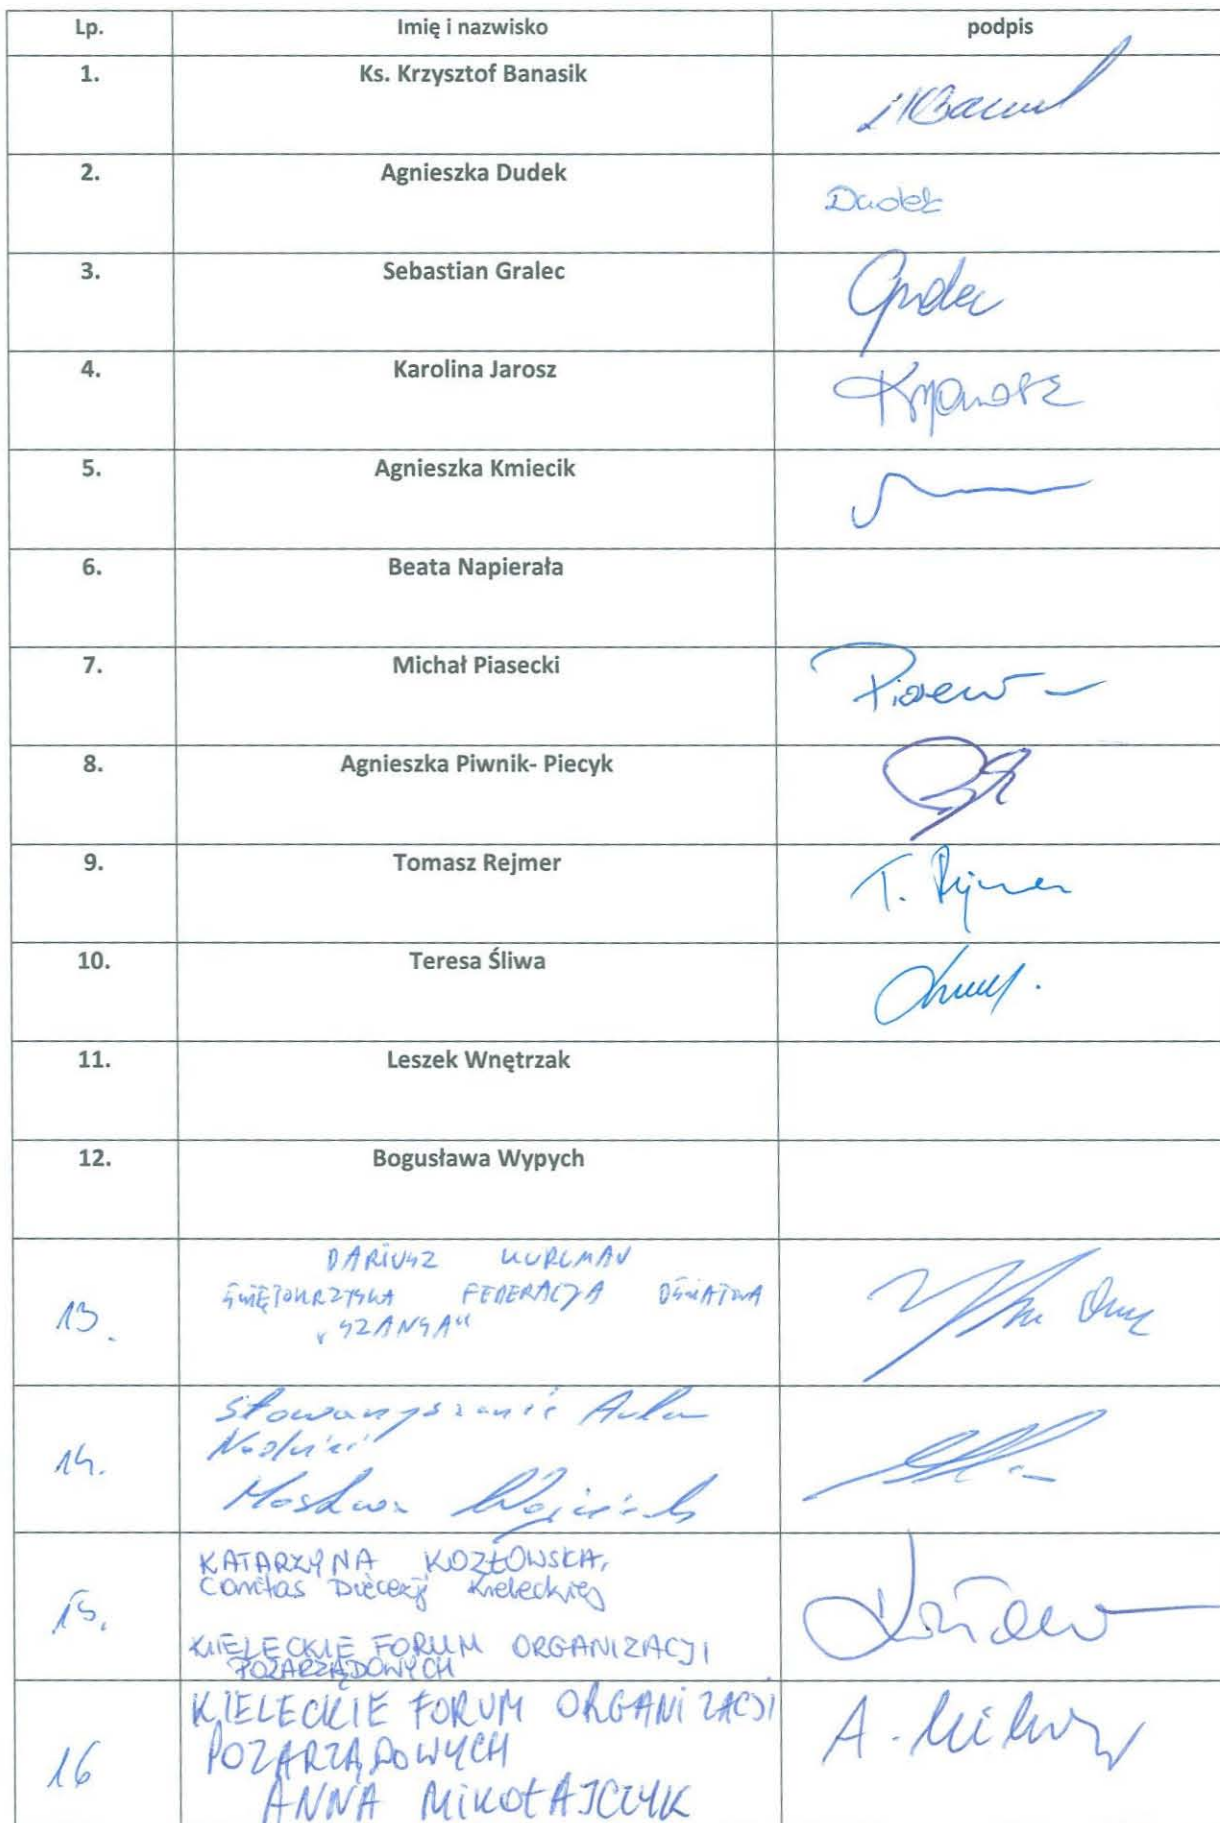 Lp. Imię i nazwisko podpis
1. Ks. Krzysztof Banasik
2. Agnieszka Dudek Dudek
3. Sebastian Gralec
4. Karolina Jarosz
5. Agnieszka Kmiecik
6. Beata Napierała
7. Michał Piasecki
8. Agnieszka Piwnik- Piecyk
9. Tomasz Rejmer T. Rejmer
10. Teresa Śliwa
11. Leszek Wnętrzak
12. Bogusława Wypych
DARIUSZ
ŚWIĘTOKRZYSKA FEDERACJA OŚWIATOWA
13. „SZANSA"
Stowarzyszenie
Nadziei
14.
Moskwa Wojciech
KATARZYNA KOZŁOWSKA,
Caritas Diecezji Kieleckiej
15.
KIELECKIE FORUM ORGANIZACJI
POZARZĄDOWYCH
KIELECKIE FORUM ORGANIZACJI
POZARZĄDOWYCH
16 ANNA MIKOŁAJCZYK